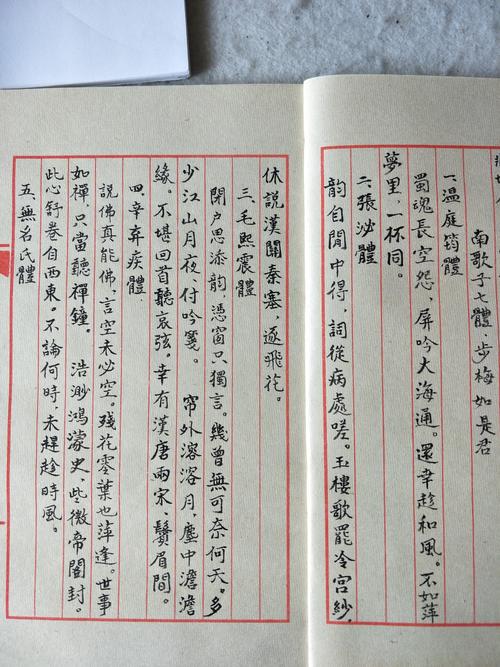 南歌子七體·步梅如是君
一、溫庭筠體
蜀魂長空怨，屏吟大海通。還幸趁和風。不如萍
夢里，一杯同。
二、張泌體
韵自閒中得，詞從病處嗟。玉樓歌罷冷宮紗，
休説漢關秦塞，逐飛花。
三、毛熙震體
閉户思添韵，憑窗只獨言。幾曾無可奈何天。多
少江山月夜，付吟箋。 帘外溶溶月，塵中澹澹
緣。不堪回首聽哀弦。幸有漢唐兩宋，鬢眉間。
四、辛弃疾體
説佛真能佛，言空未必空。殘花零葉也萍逢。世事
如禪，只當聽禪鐘。 浩渺鴻濛史，些微帝閣封。
此心舒卷自西東。不論何時，未趕趁時風。
五、無名氏體